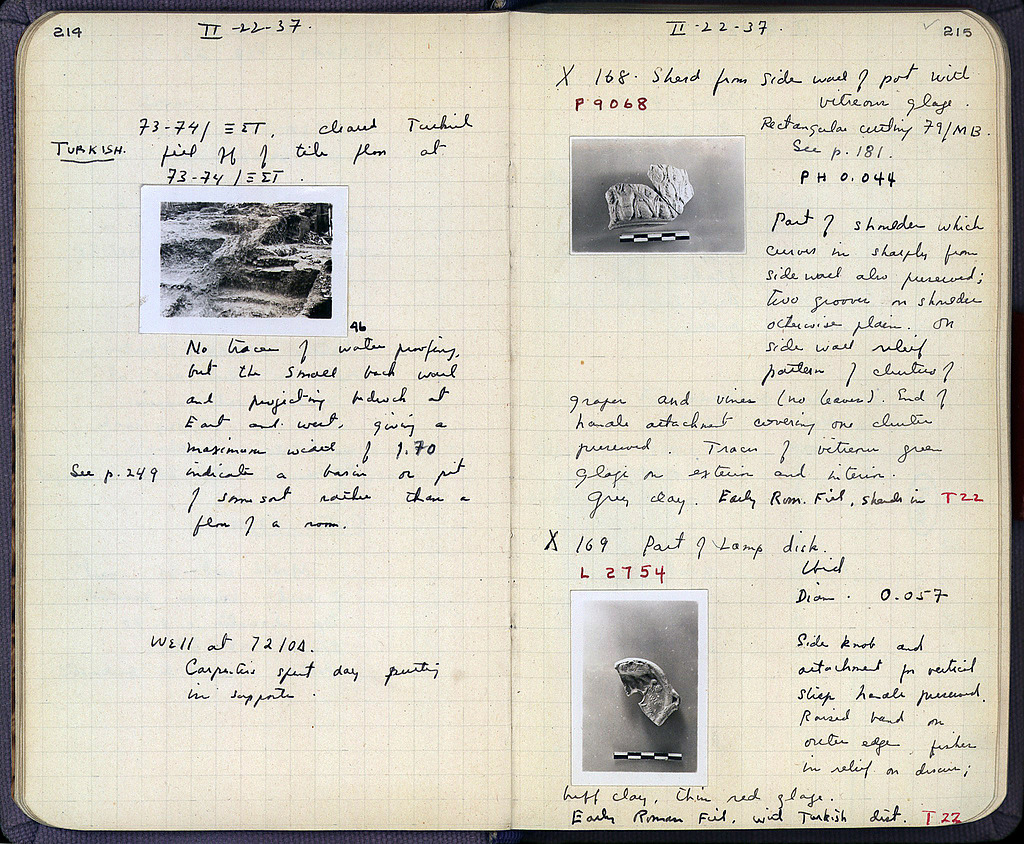 214
II-22-37.
73-74/ΞΣΤ, cleared Turkish
TURKISH.
fill off of tile floor at
73-74/ΞΣΤ.
96
No traces of water proofing,
but the small back wall
and projecting bedrock at
East and west, giving a
maximum width of 1.70
See p. 249
indicate a basin or pit
of some sort rather than a
floor of a room.
Well at 72/ΟΔ.
Carpenters spent day putting
in supports.
II-22-37.
215
X 168. Sherd from side wall of pot with
P 9068
vitreous glaze.
Rectangular cutting 79/ΜΒ.
See p. 181.
PH 0.044
Part of shoulder which
curves in sharply from
side wall also preserved;
two grooves on shoulder
otherwise plain. On
side wall relief
pattern of clusters of
grapes and vines (no leaves). End of
handle attachment covering one cluster
preserved. Traces of vitreous green
glaze on exterior and interior.
Grey clay. Early Rom. Fill, sherds in T22
X 169 Part of Lamp disk.
L 2754
Ibid
Diam. 0.057
Side knob and
attachment for vertical
strap handle preserved.
Raised band on
outer edge, fisher
in relief on discus;
buff clay, thin red glaze.
Early Roman Fill, with Turkish dist. T22